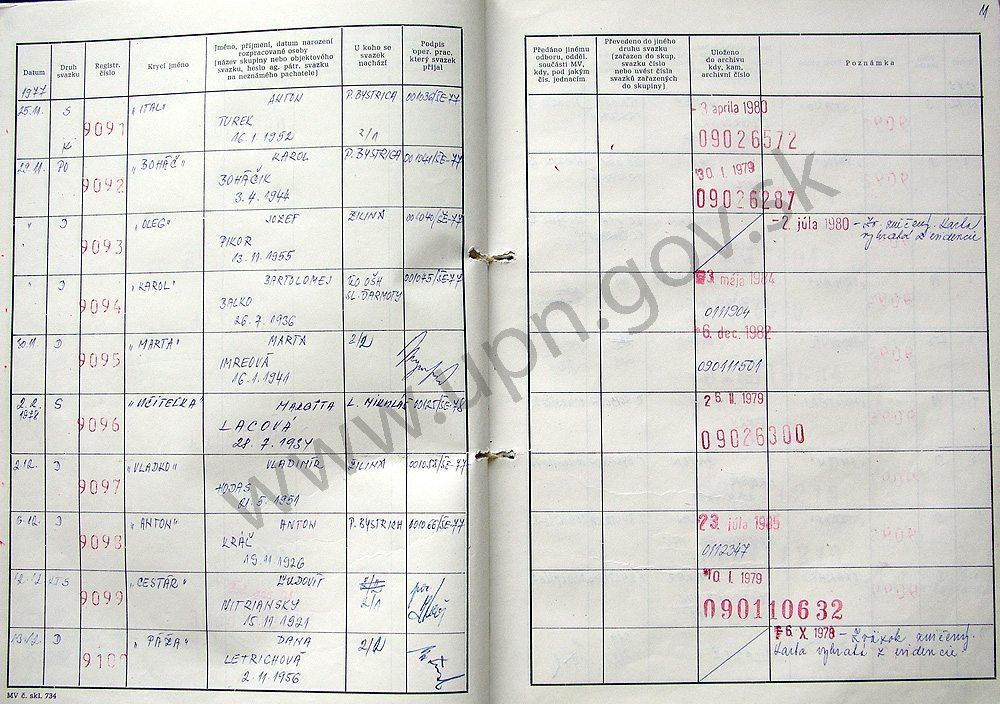 11
Datum
Druh svazku
Registr. číslo
Krycí jméno
Jméno, příjmení, datum narození
rozpracované osoby
(název skupiny nebo objektového
svazku, heslo ag. pátr. svazku
na neznámého pachatele)
U koho se
svazek
nachází
Podpis
oper. prac.
který svazek
přijal
Předáno jinému
odboru, odděl.
součásti MV,
kdy, pod jakým
čís. jednacím
Převedeno do jiného
druhu svazku
(zařazen do skup.
svazku číslo
nebo uvést čísla
svazků zařazených
do skupiny)
Uloženo
do archivu
kdy, kam,
archivní číslo
Poznámka
1977
25.11. S 9091 "ITAL" ANTON P. BYSTRICA 001036/ŠE-77
TUREK
16.1.1952 2/1
- 3 apríla 1980
09026572
29.11. PO 9092 "BOHÁČ" KAROL P. BYSTRICA 001041/ŠE-77
BOHÁČIK
3.4.1944
30. I. 1979
09026287
" D 9093 "OLEG" JOZEF ŽILINA 001040/ŠE-77
PIKOR
13.11.1955
- 2. júla 1980 - Zv. zničený. Karta
vybratá z evidencie
" D 9094 "KAROL" BARTOLOMEJ OŠH 001075/ŠE-77
BALKO SL. ĎARMOTY
26.7.1936
3. mája 1984
0111904
30.11. D 9095 "MARTA" MARTA 2/2
IMREOVÁ
16.1.1941
- 6. dec. 1982
090111501
2.2. 1978 S 9096 "UČITEĽKA" MARGITA L. MIKULÁŠ 00125/ŠE-78
LACOVÁ
28.7.1934
26. II. 1979
09026300
2.12. D 9097 "VLADKO" VLADIMÍR ŽILINA 001053/ŠE-77
HODAS
21.5.1951
5.12. D 9098 "ANTON" ANTON P. BYSTRICA 001066/ŠE-77
KRÁĽ
19.11.1926
23. júla 1985
0112347
12.12. KTS 9099 "CESTÁR" ĽUDOVÍT 2/1
NITRIANSKY 2/1
15.11.1921
10. I. 1979
090110632
13.12. D 9100 "PÁŽA" DANA 2/2
LETRICHOVÁ
2.11.1956
- 6. X. 1978 - Zväzok zničený.
Karta vybratá z evidencie
MV č. skl. 734
www.upn.gov.sk